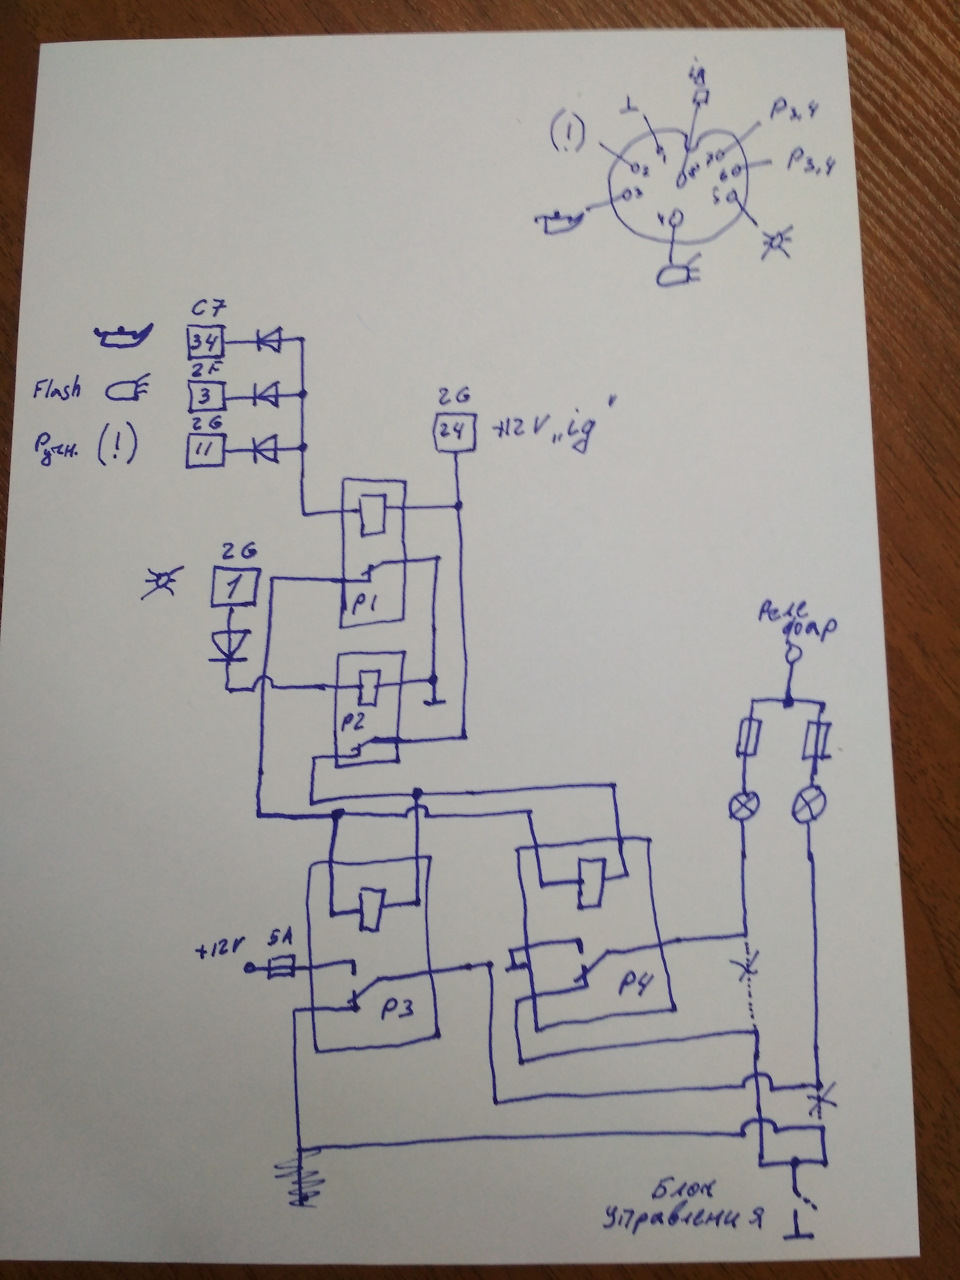 ig
⊥
(!)
P3,4
P3,4
1
2
3
4
5
6
7
8
C7
34
2F
Flash
3
2G
Ручн. (!)
11
2G
24
+12V „ig"
2G
1
P1
P2
Реле
фар
+12V
5A
P3
P4
Блок
управления